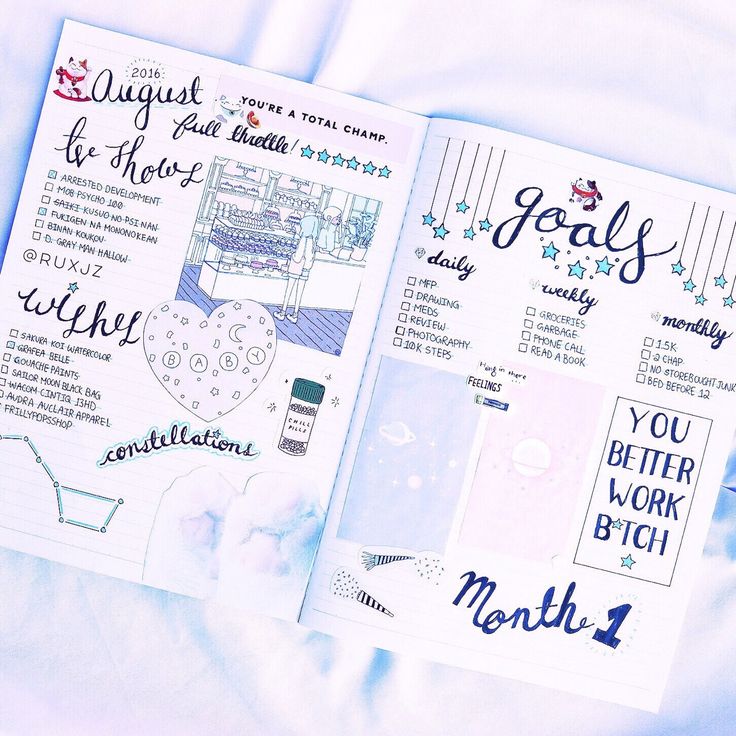 2016
August
YOU'RE A TOTAL CHAMP.
full throttle!
tv shows
ARRESTED DEVELOPMENT
MOB PSYCHO 100
SAIKI KUSUO NO PSI NAN
FUKIGEN NA MONONOKEAN
BINAN KOUKOU
D. GRAY MAN HALLOW
@RUXJZ
wishes
SAKURA KOI WATERCOLOR
GRAFEA BELLE
GOUACHE PAINTS
SAILOR MOON BLACK BAG
WACOM CINTIQ 13HD
AUDRA AUCLAIR APPAREL
FRILLYPOPSSHOP
BABY
CHILL
PILLS
constellations
goals
daily
MFP
DRAWING
MEDS
REVIEW
PHOTOGRAPHY
10K STEPS
weekly
GROCERIES
GARBAGE
PHONE CALL
READ A BOOK
monthly
1.5K
2 CHAP.
NO STOREBOUGHT JUNK
BED BEFORE 12
FEELINGS
YOU
BETTER
WORK
B*TCH
Month 1